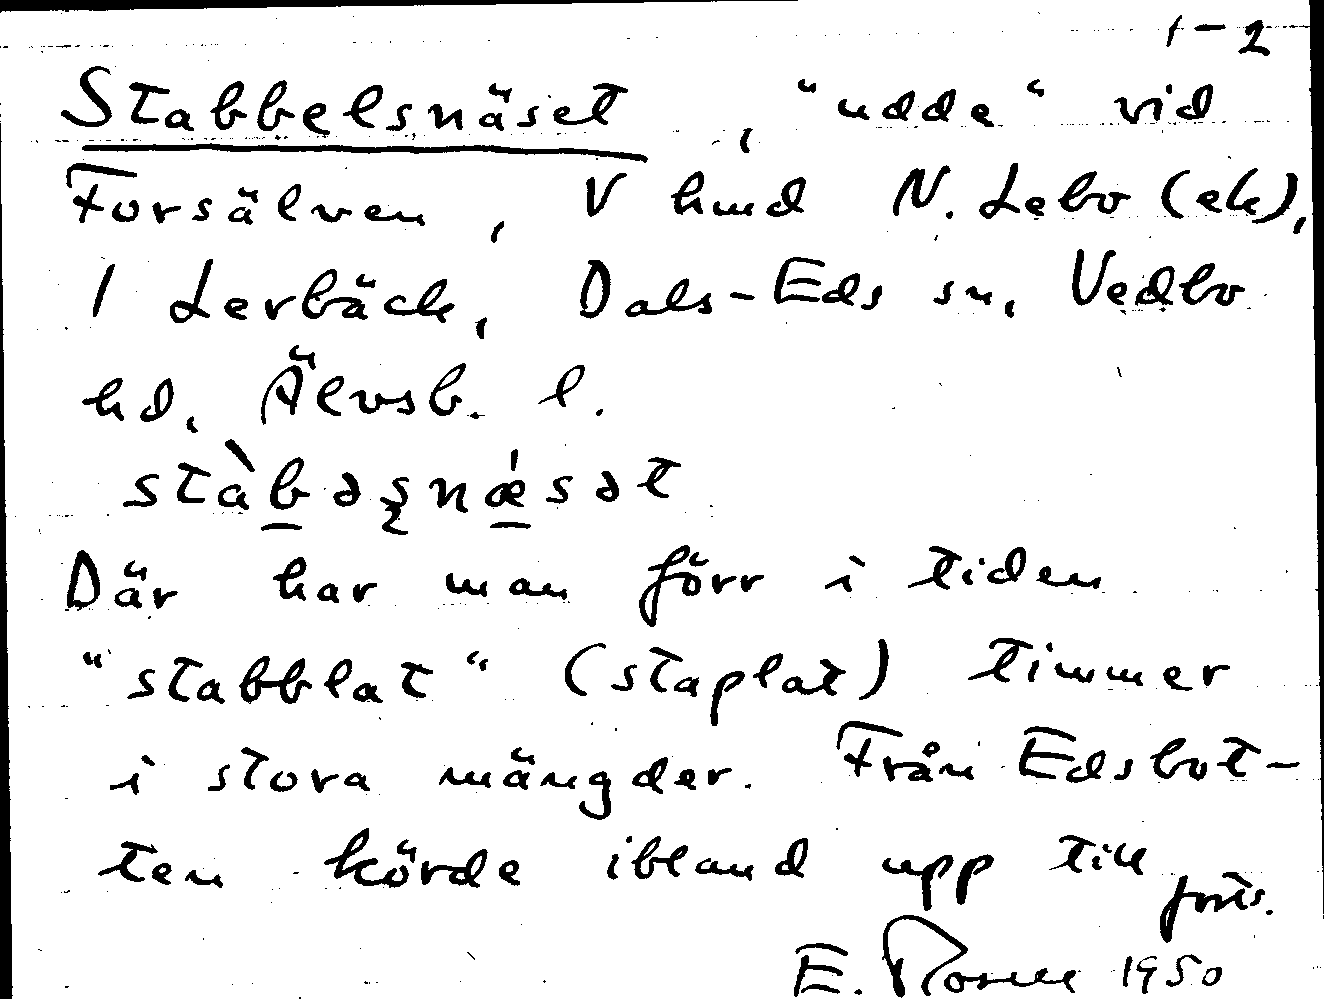 1-2
Stabbelsnäset, "udde" vid
Forsälven, V hmd N. Lebo (ek),
1 Lerbäck, Dals-Eds sn, Vedbo
hd, Älvsb. l.
stàbəʂnǽsət
Där har man förr i tiden
"stabblat" (staplat) timmer
i stora mängder. Från Edsbot-
ten körde ibland upp till
forts.
E. 1950